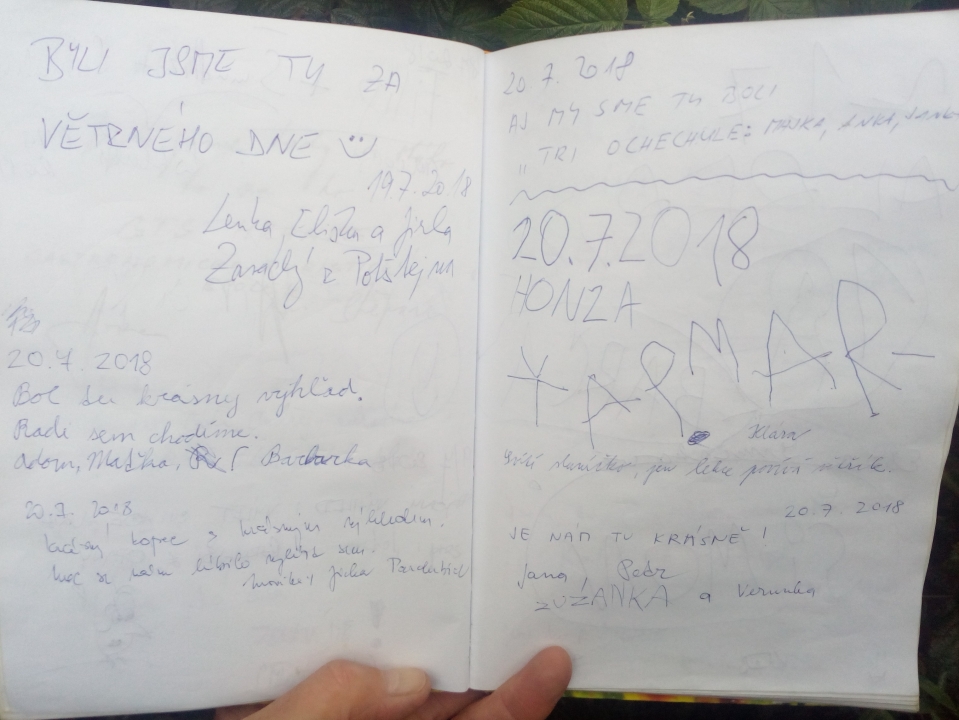 BYLI JSME TU ZA
VĚTRNÉHO DNE
19.7.2018
Lenka, Eliška a Jirka
z Potštejna
20.7.2018
Bol tu krásny výhľad.
Radi sem chodíme.
Adam, Barborka
20.7.2018
krásný kopec s krásným výhledem.
moc se nám líbilo sem.
Jirka Pardubice
20.7.2018
AJ MY SME TU BOLI
"TRI OCHECHULE: MANKA, ANKA,
20.7.2018
HONZA
Klara
sluníčko, jen lehce
20.7.2018
JE NÁM TU KRÁSNĚ!
Jana, Petr
ZUZANKA a Verunka